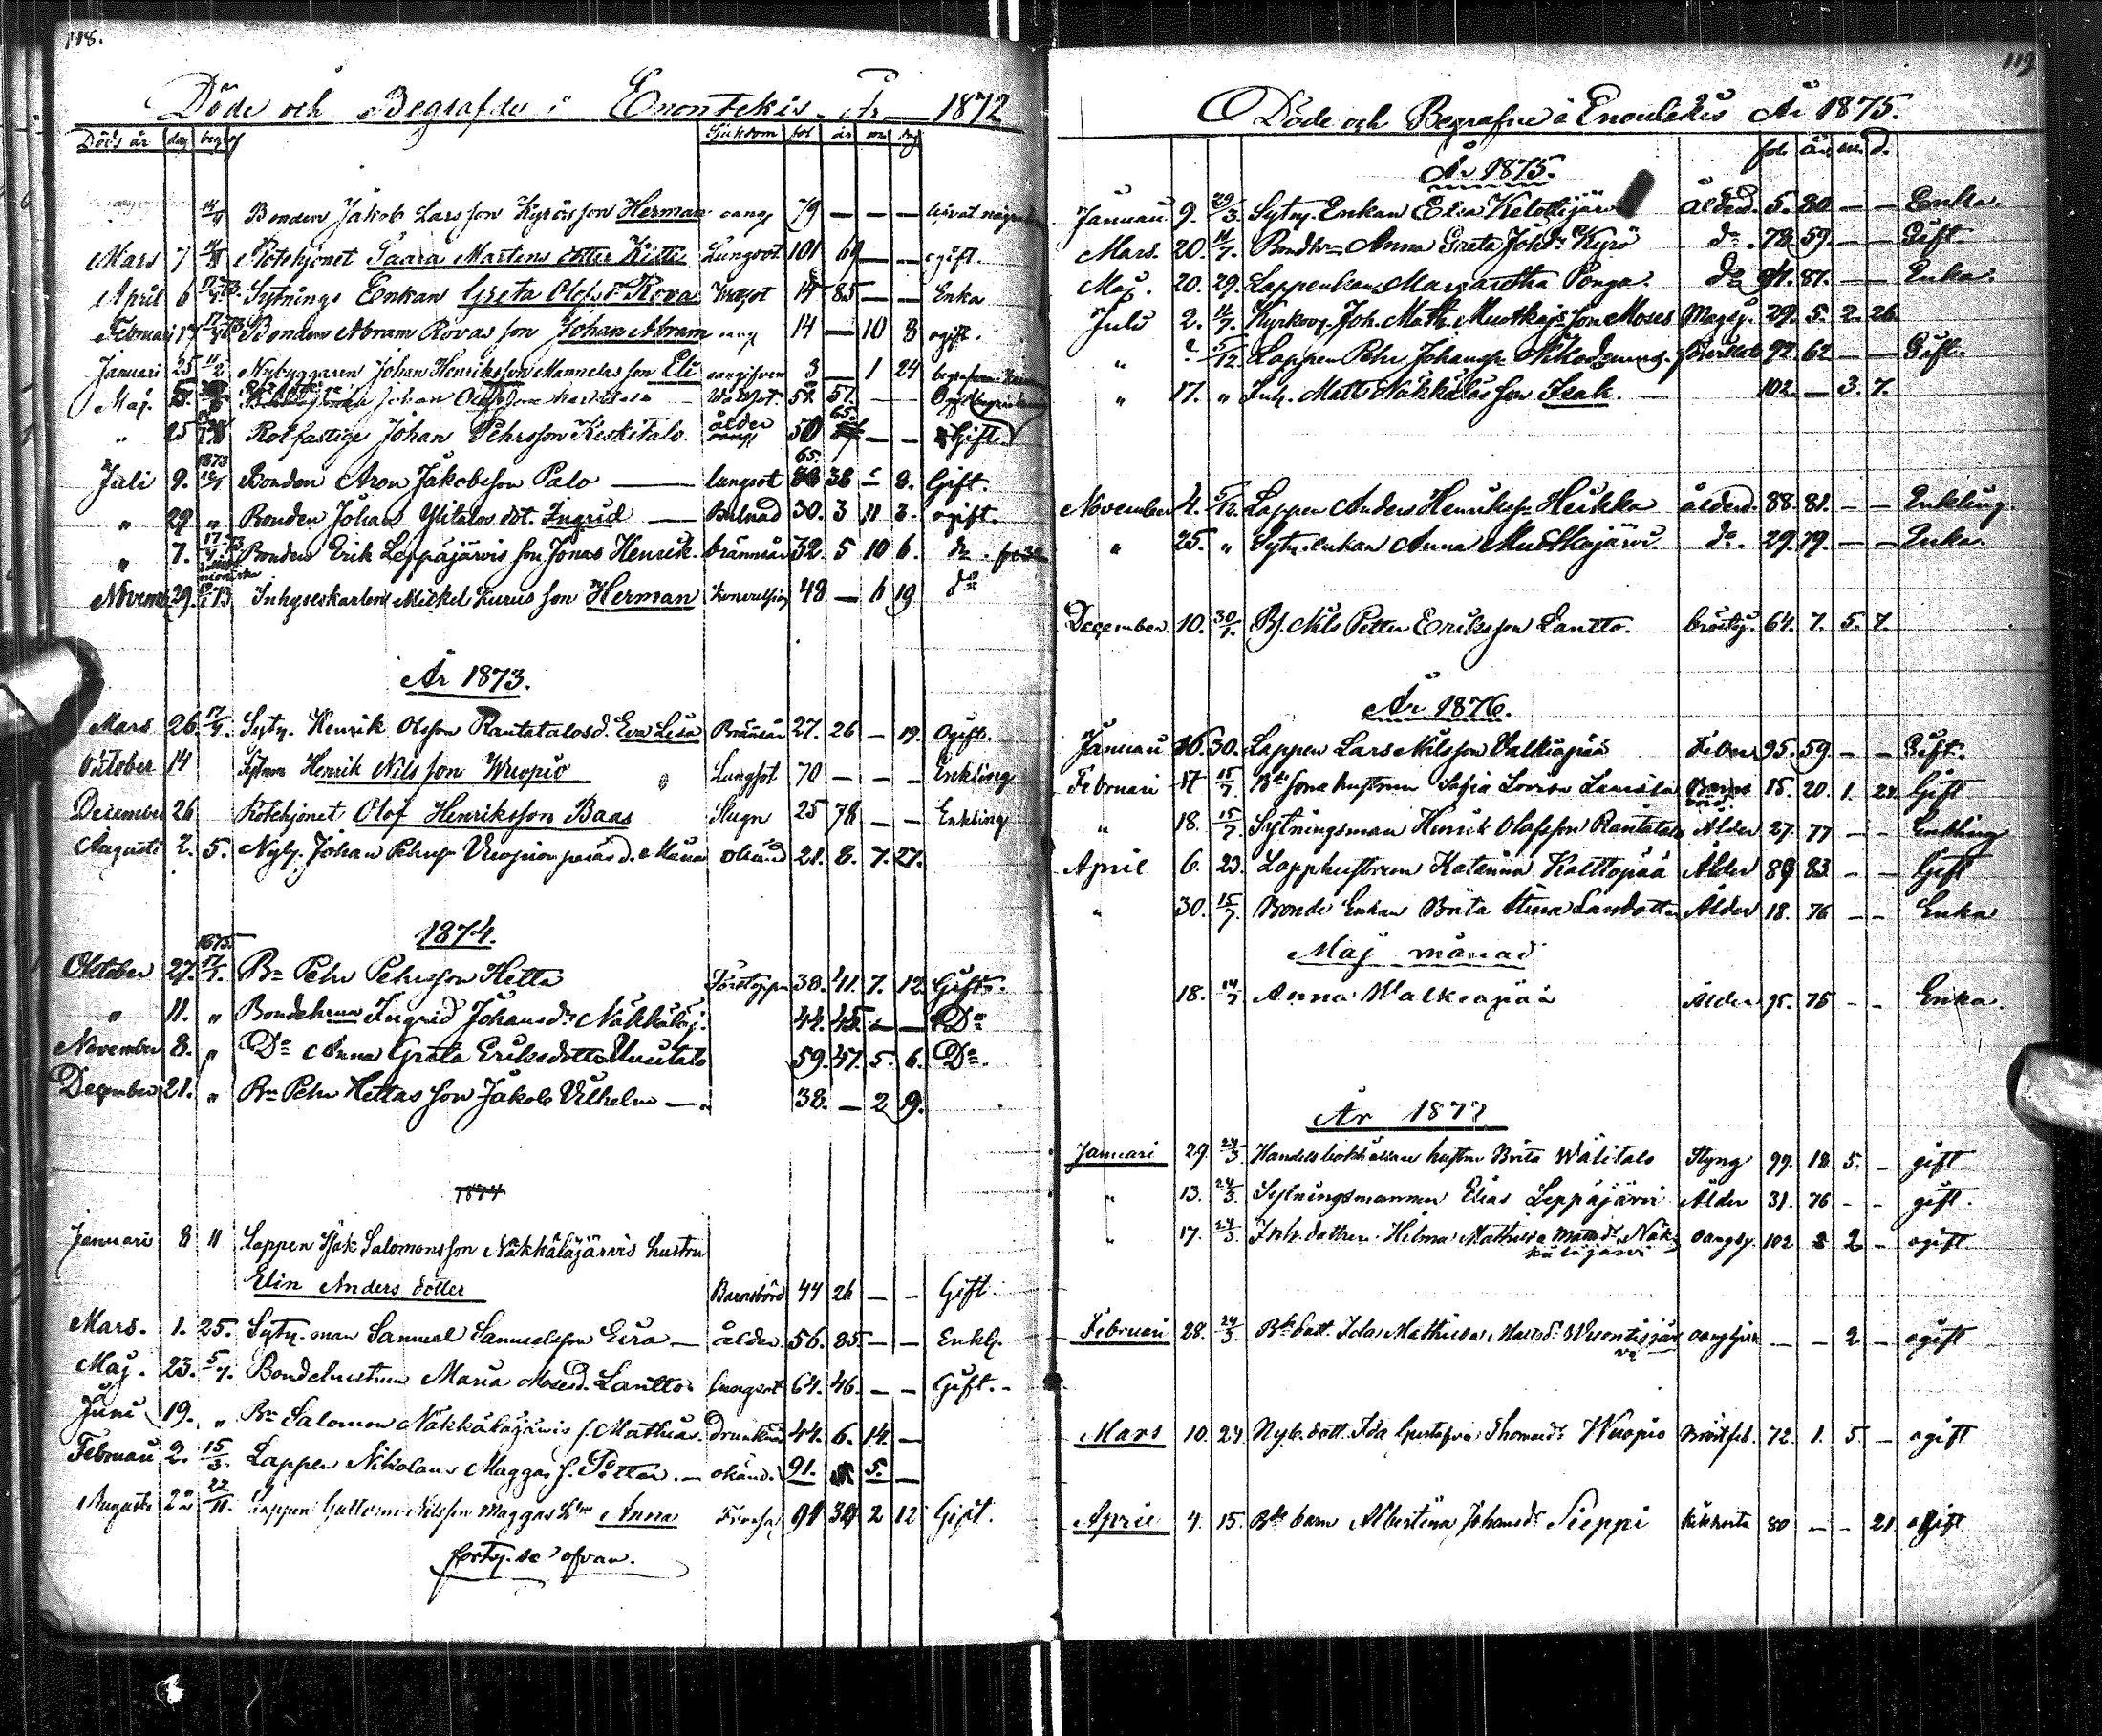 118.
Döde och Begrafde i Enontekis År 1872
Döds år dag begrf Sjukdom fol år m dag
14/4 Bonden Jakob Larsson Kyrös son Herman oang 79 — — —
Mars 7 Rotehjonet Saara Martens dotter Kitti Lungsot 101 69 — — ogift.
April 6 Sytnings Enkan Greta Olofsdr Rova 14 85 — — Enka
Februari 17 Bonden Abram Rovas son Johan Abram oang 14 — 10 8 ogift.
Januari 25 11/2 Nybyggaren Johan Henriksson Mannelas son Eli oangifven 3 — 1 24
Maj. Johan 52. 57. — —
" 25 Rotfattige Johan Pehrsson Keskitalo. ålder 50 65. — — Gift.
1873 65.
Juli 9. Bonden Aron Jakobsson Palo — lungsot 38 – 8. Gift.
" 29 " Bonden Johan Ylitalos dot. Ingrid — Bulnad 30. 3 11 3. ogift.
" 7. Bonden Erik Leppäjärvis son Jonas Henrik. brännsår 32. 5 10 6. do.
Novem 29. Inhyseskarlen Mickel Kurus son Herman Konvulsion 48 — 6 19 do
År 1873.
Mars 26. 17/4. Sytn. Henrik Olsson Rantatalos d. Eva Lisa Brännsår 27. 26 — 19. Ogift.
Oktober 14 Sytnm Henrik Nilsson Wuopio " Lungsot 70 — — — Enkling
December 26 Rotehjonet Olof Henriksson Baas Slagn 25 78 — — Enkling
Augusti 2. 5. Nyb. Johan Pehrss. Vuopion d. Maria okänd 21. 8. 7. 27.
1874.
1875.
Oktober 27. 17/1. Bn Pehr Pehrsson Hetta 38. 41. 7. 12. Gift.
" 11. " Bondehrun Ingrid Johansdr Näkkäläj. 44. 45. — — Do
November 8. " Do Anna Greta Eriksdotter Uusitalo 59. 47. 5. 6. Do.
December 21. " Bn Pehr Hettas son Jakob Vilhelm — 38. — 2 9.
1874
Januari 8 11 Lappen Isak Salomonsson Näkkäläjärvis hustru
Elin Anders dotter Barnsbörd 44 26 — — Gift
Mars. 1. 25. Sytn. man Samuel Samuelsson Eira — ålder. 56. 85. — — Enklg.
Maj. 23. 5/7. Bondehustrun Maria Mosesd. Lantto. lungsot 64. 46. — — Gift.
Juni 19. " Bn Salomon Näkkäläjärvis s. Mathias. Drunknad 44. 6. 14. —
Februari 2. 15/3. Lappen Nikolaus Maggas s. Petter. — okänd. 91. 5. —
Augusti 22 22/11. Lappen Guttorm Nilsson Maggas hru Anna 91 39 2 12 Gift.
forts. se ofvan.
119
Döde och Begrafne i Enontekis År 1875.
fol. år. m. d.
År 1875.
Januari 9. 29/3. Sytn. Enkan Elsa Kelottijärvi ålderd. 5. 80 — — Enka.
Mars. 20. 11/7. Bondhrn Anna Greta Johdr Kyrö do. 78. 59. — — Gift.
Maj. 20. 29. Lappenkan Margaretha Ponga. do 87. — — Enka.
Juli 2. 11/7. Kyrkovg. Joh. Math. Muotkajs. son Moses Magsj. 29. 5. 2. 26
" ? 5/12. Lappen Pehr Johanss. Nikodemus. 92. 62 — — Gift.
" 17. " Inh. Matts Näkkäläs son Isak. — 102. — 3. 7.
November 4. 5/12. Lappen Anders Henrikss. Heikka ålderd. 88. 81. — — Enkling.
" 25. " Sytn. enkan Anna Muotkajärvi. do. 29. 79. — — Enka.
December. 10. 30/1. Bs. Nils Petter Eriksson Lantto. bröstsj. 64. 7. 5. 7.
År 1876.
Januari 16. 30. Lappen Lars Nilsson Valkiapää Feber 95. 59. — — Gift.
Februari 17 15/7. Bde sons hustrun Sofia Lovisa Barns börd. 15. 20. 1. 27. Gift
" 18. 15/7. Sytningsman Henrik Olofsson Rantatalo Ålder 27. 77 — — Enkling
April 6. 23. Lapphustrun Katarina Kalttopää Ålder 89 83. — — Gift
" 30. 15/7. Bonde Enkan Brita Stina Larsdotter Ålder 18. 76 — — Enka
Maj månad
18. 14/7 Anna Walkeapää Ålder 95. 75 — — Enka.
År 1877.
Januari 29. 24/3. Handelsbokhållare hustru Brita Wälitalo Styng 99. 18 5. — gift
" 13. 24/3. Sytningsmannen Elias Leppäjärvi Ålder 31. 76 – – gift.
" 17. 24/3. Inh. dottren Hilma Mathilda Mattsdr Näk- oangg. 102 2 – ogift.
käläjärvi
Februari 28. 24/3. Bde dott. Ida Mathilda Mattsdr Wuontisjär oangifven — — 2 — ogift
vi
Mars 10. 24 Nyb. dott. Ida Gustafva Thomasdr Wuopio Bröstfeb. 72. 1. 5. — ogift
April 4. 15. Bde barn Albertina Johansdr Sieppi kikhosta 80 — – 21 ogift